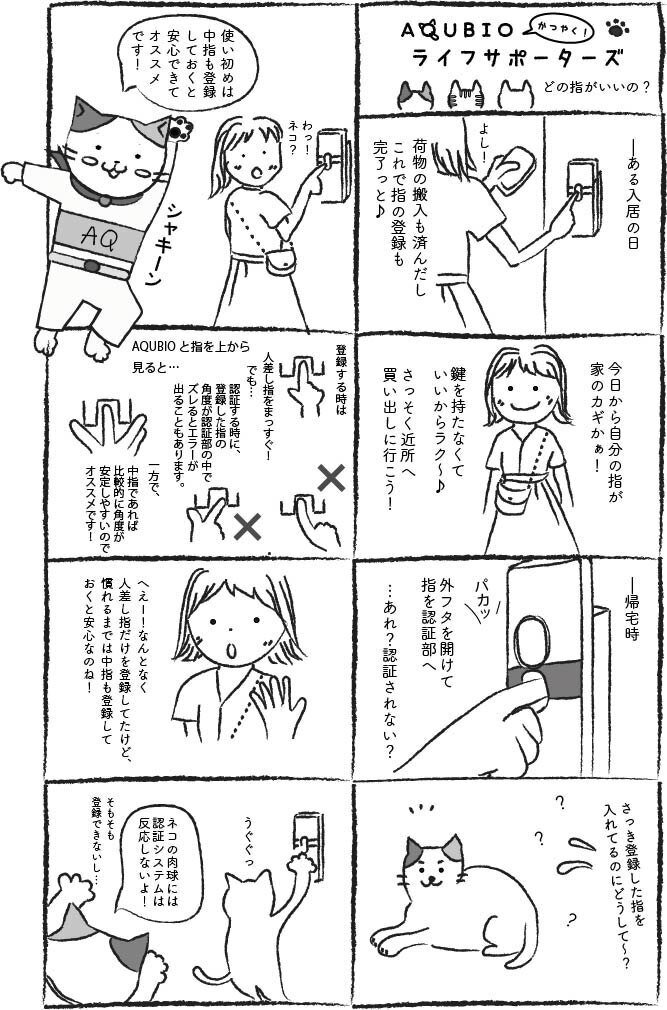 AQUBIO
かつやく！
ライフサポーターズ
どの指がいいの？
―ある入居の日
よし！
荷物の搬入も済んだし
これで指の登録も
完了っと♪
今日から自分の指が
家のカギかぁ！
鍵を持たなくて
いいからラク～♪
さっそく近所へ
買い出しに行こう！
―帰宅時
パカッ
外フタを開けて
指を認証部へ
…あれ？認証されない？
さっき登録した指を
入れてるのにどうして～？
?
?
?
わっ！
ネコ？
使い初めは
中指も登録
しておくと
安心できて
オススメ
です！
シャキーン
AQ
AQUBIOと指を上から
見ると…
登録する時は
人差し指をまっすぐ！
でも…
認証する時に、
登録した指の
角度が認証部の中で
ズレるとエラーが
出ることもあります。
一方で、
中指であれば
比較的に角度が
安定しやすいので
オススメです！
へえー！なんとなく
人差し指だけを登録してたけど、
慣れるまでは中指も登録して
おくと安心なのね！
うぐぐっ
ネコの肉球には
認証システムは
反応しないよ！
そもそも
登録できないし…